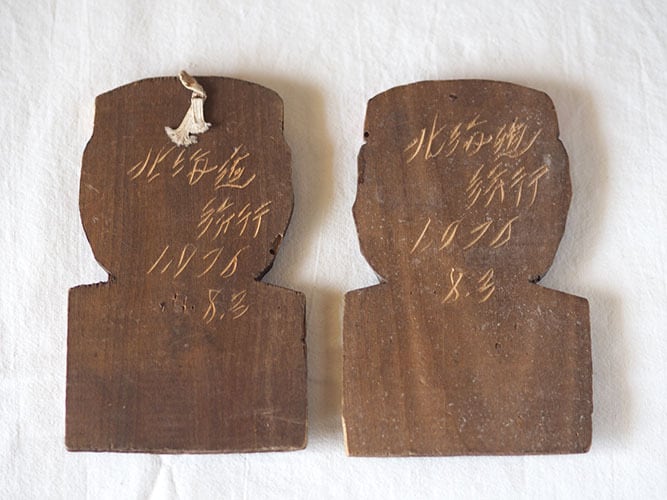 北海道
旅行
1.976
8.3
北海道
旅行
1.976
8.3